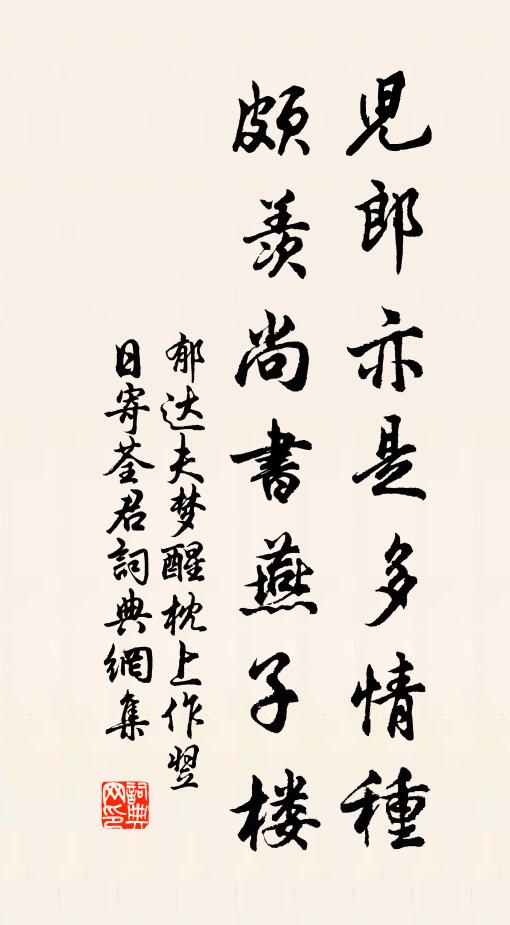 兒郎亦是多情種
頗羨尚書燕子楼
郁达夫梦醒枕上作翌
日寄荃君詞典網集
詞典
网印